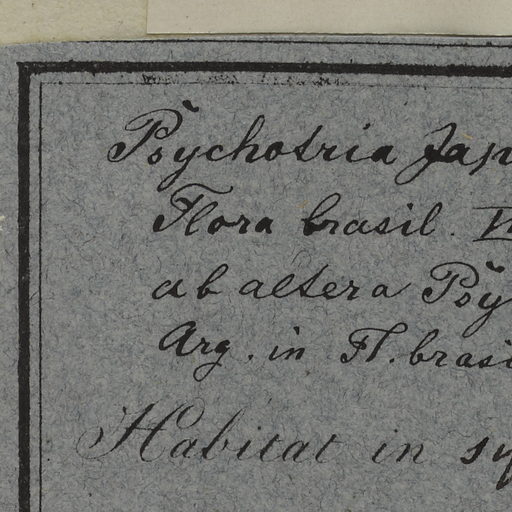 Psychotria Jap
Flora brasil. VI
ab altera Psy
Arg. in Fl. brasi
Habitat in sy